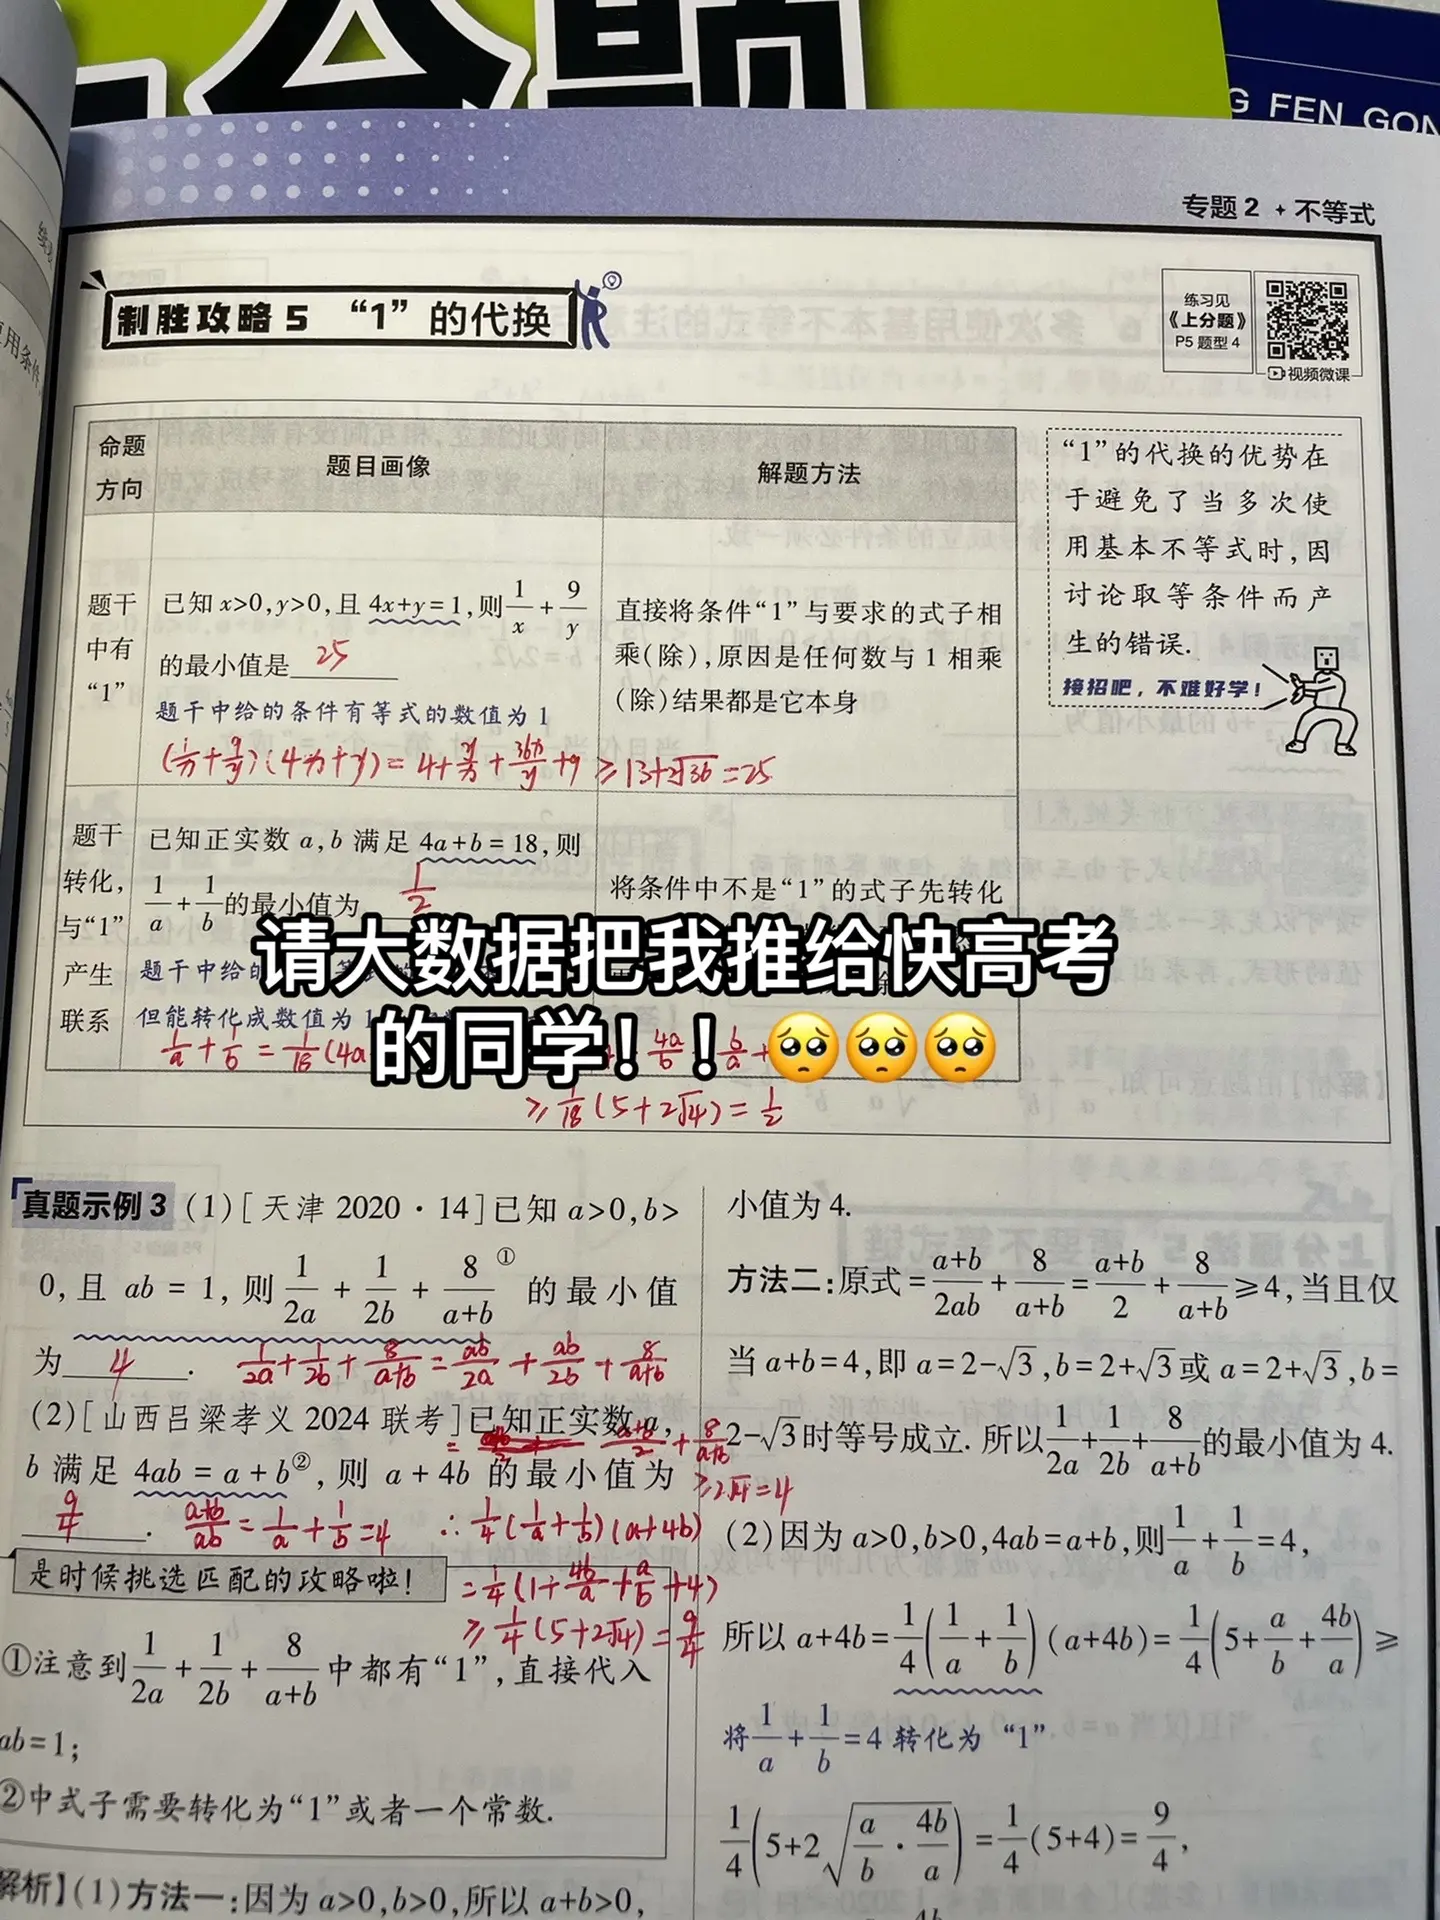 G FEN GON
专题2 + 不等式
制胜攻略5 “1”的代换
练习见
《上分题》
P5 题型 4
视频微课
命题方向
题目画像
解题方法
题干中有“1”
已知 x>0,y>0,且 4x+y=1,则 1/x + 9/y
的最小值是 25
题干中给的条件有等式的数值为 1
(1/x+9/y)(4x+y)=4+y/x+36x/y+9≥13+2√36=25
直接将条件“1”与要求的式子相
乘(除),原因是任何数与 1 相乘
(除)结果都是它本身
“1”的代换的优势在
于避免了当多次使
用基本不等式时,因
讨论取等条件而产
生的错误.
接招吧，不难好学！
题干转化,与“1”产生联系
已知正实数 a,b 满足 4a+b=18,则
1/a + 1/b 的最小值为 1/2
题干中给的
但能转化成数值为 1
1/a+1/b=1/18(4a
4a/b
b/a+
≥1/18(5+2√4)=1/2
将条件中不是“1”的式子先转化
请大数据把我推给快高考
的同学！！🥺🥺🥺
真题示例 3 (1)[天津 2020·14]已知 a>0,b>
0,且 ab=1,则 1/2a + 1/2b + 8/(a+b) ① 的最小值
为 4 .
1/2a+1/2b+8/(a+b)=ab/2a+ab/2b+8/(a+b)
= (a+b)/2+8/(a+b)
≥2√4=4
(2)[山西吕梁孝义 2024 联考]已知正实数 a,
b 满足 4ab=a+b②,则 a+4b 的最小值为
9/4 .
(a+b)/ab=1/a+1/b=4 ∴1/4(1/a+1/b)(a+4b)
=1/4(1+4b/a+a/b+4)
≥1/4(5+2√4)=9/4
是时候挑选匹配的攻略啦！
①注意到 1/2a + 1/2b + 8/(a+b) 中都有“1”,直接代入
ab=1;
②中式子需要转化为“1”或者一个常数.
解析】(1)方法一:因为 a>0,b>0,所以 a+b>0,
小值为 4.
方法二:原式=(a+b)/2ab + 8/(a+b) = (a+b)/2 + 8/(a+b) ≥4,当且仅
当 a+b=4,即 a=2-√3,b=2+√3或 a=2+√3,b=
2-√3时等号成立. 所以 1/2a + 1/2b + 8/(a+b) 的最小值为 4.
(2)因为 a>0,b>0,4ab=a+b,则 1/a + 1/b =4,
所以 a+4b= 1/4(1/a + 1/b)(a+4b)= 1/4(5+ a/b + 4b/a) ≥
将 1/a + 1/b =4 转化为 “1”
1/4(5+2√(a/b · 4b/a)) = 1/4(5+4)= 9/4,